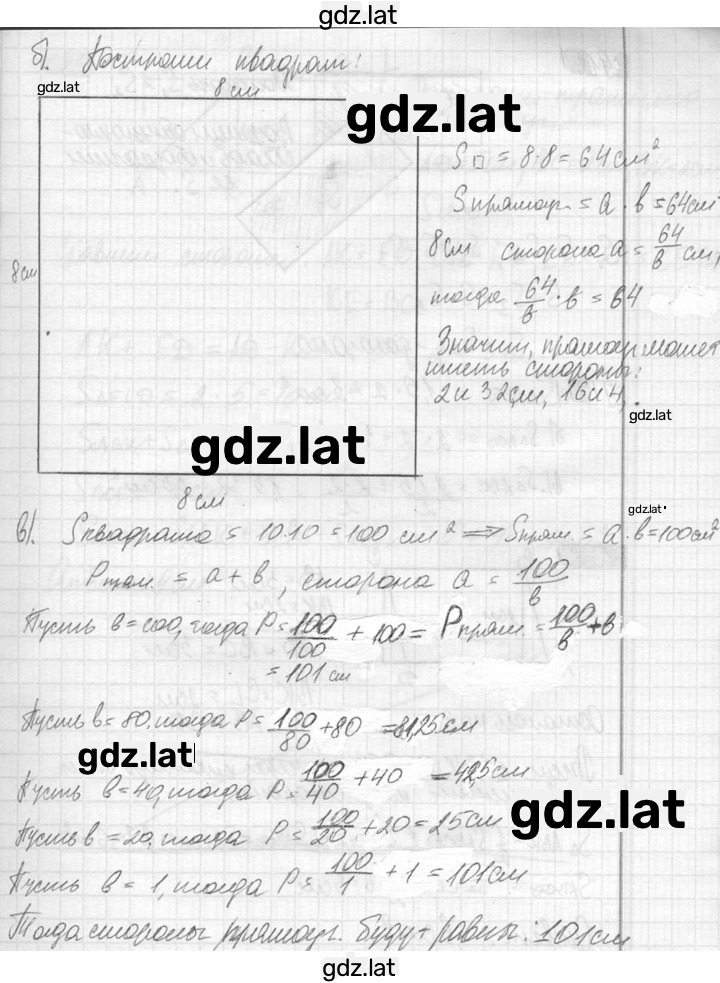 gdz.lat
б). Построим квадрат:
gdz.lat
8 см
gdz.lat
S□ = 8·8 = 64 см²
Sпрямоуг. = a · b = 64 см²
8 см
8 см
сторона a = 64/b см,
тогда 64/b · b = 64
Значит, прямоуг может
иметь стороны:
2 и 32 см, 16 и 4.
gdz.lat
gdz.lat
8 см
gdz.lat
в). Sквадрата = 10·10 = 100 см² ⇒ Sпрям. = a · b = 100 см²
Pпрям. = a + b, сторона a = 100/b
Пусть b = 100, тогда P = 100/100 + 100 = Pпрям. = 100/b + b
= 101 см
Пусть b = 80, тогда P = 100/80 + 80 = 81,25 см
gdz.lat
Пусть b = 40, тогда P = 100/40 + 40 = 42,5 см
gdz.lat
Пусть b = 20, тогда P = 100/20 + 20 = 25 см
Пусть b = 1, тогда P = 100/1 + 1 = 101 см
Тогда стороны прямоуг. будут равны. 101 см
gdz.lat